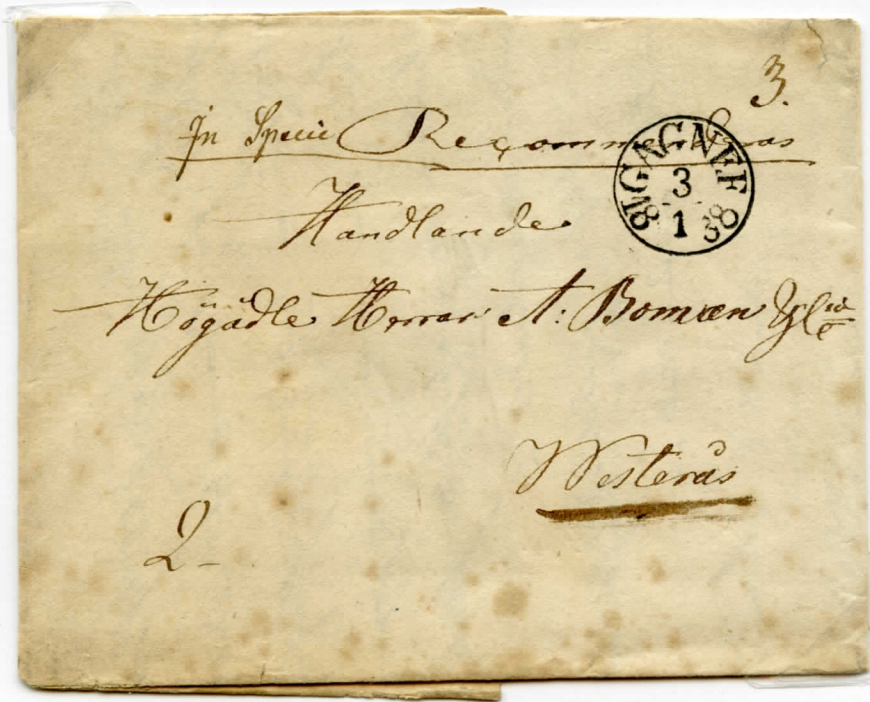 3.
In Specie Recommenderas
GAGNEF
3
1
18 38
Handlande
Högädle Herrar A: Boman
Westerås
2-